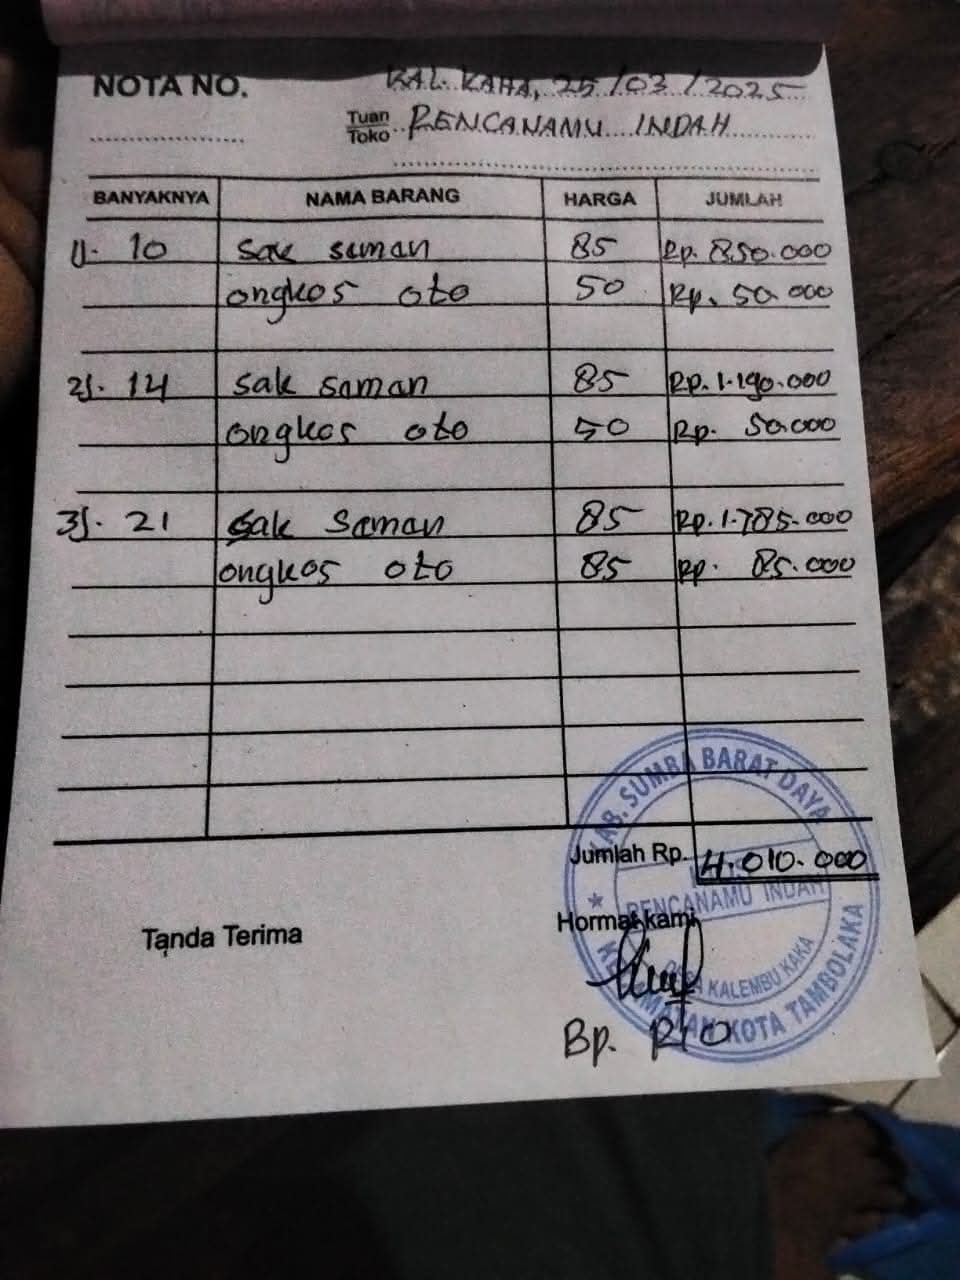 NOTA NO.
KAL. KAHA, 25/03/2025
Tuan
Toko RENCANAMU INDAH
BANYAKNYA NAMA BARANG HARGA JUMLAH
1). 10 sak saman 85 Rp. 850.000
ongkos oto 50 Rp. 50.000
2). 14 sak saman 85 Rp. 1.190.000
ongkos oto 50 Rp. 50.000
3). 21 sak saman 85 Rp. 1.785.000
ongkos oto 85 Rp. 85.000
Jumlah Rp. 4.010.000
Tanda Terima Hormat kami,
Bp. RIO
KAB. SUMBA BARAT DAYA
RENCANAMU INDAH
DESA KALEMBU KAKA
KECAMATAN KOTA TAMBOLAKA